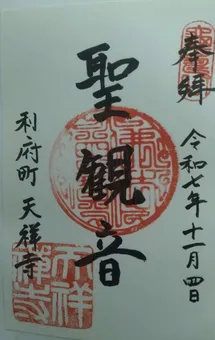 奉拝
令和七年十一月四日
聖観音
利府町 天祥寺
天祥禅寺